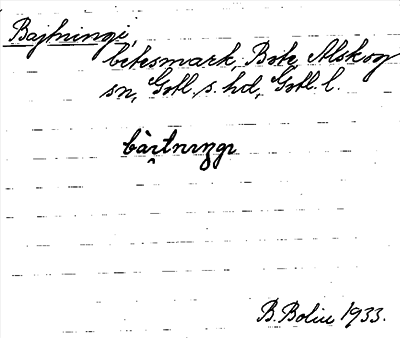 Bajtningi,
betesmark, Bote, Alskog
sn, Gotl. s. hd, Gotl. l.
bài̯tnıŋgı
B. Bolin 1933.